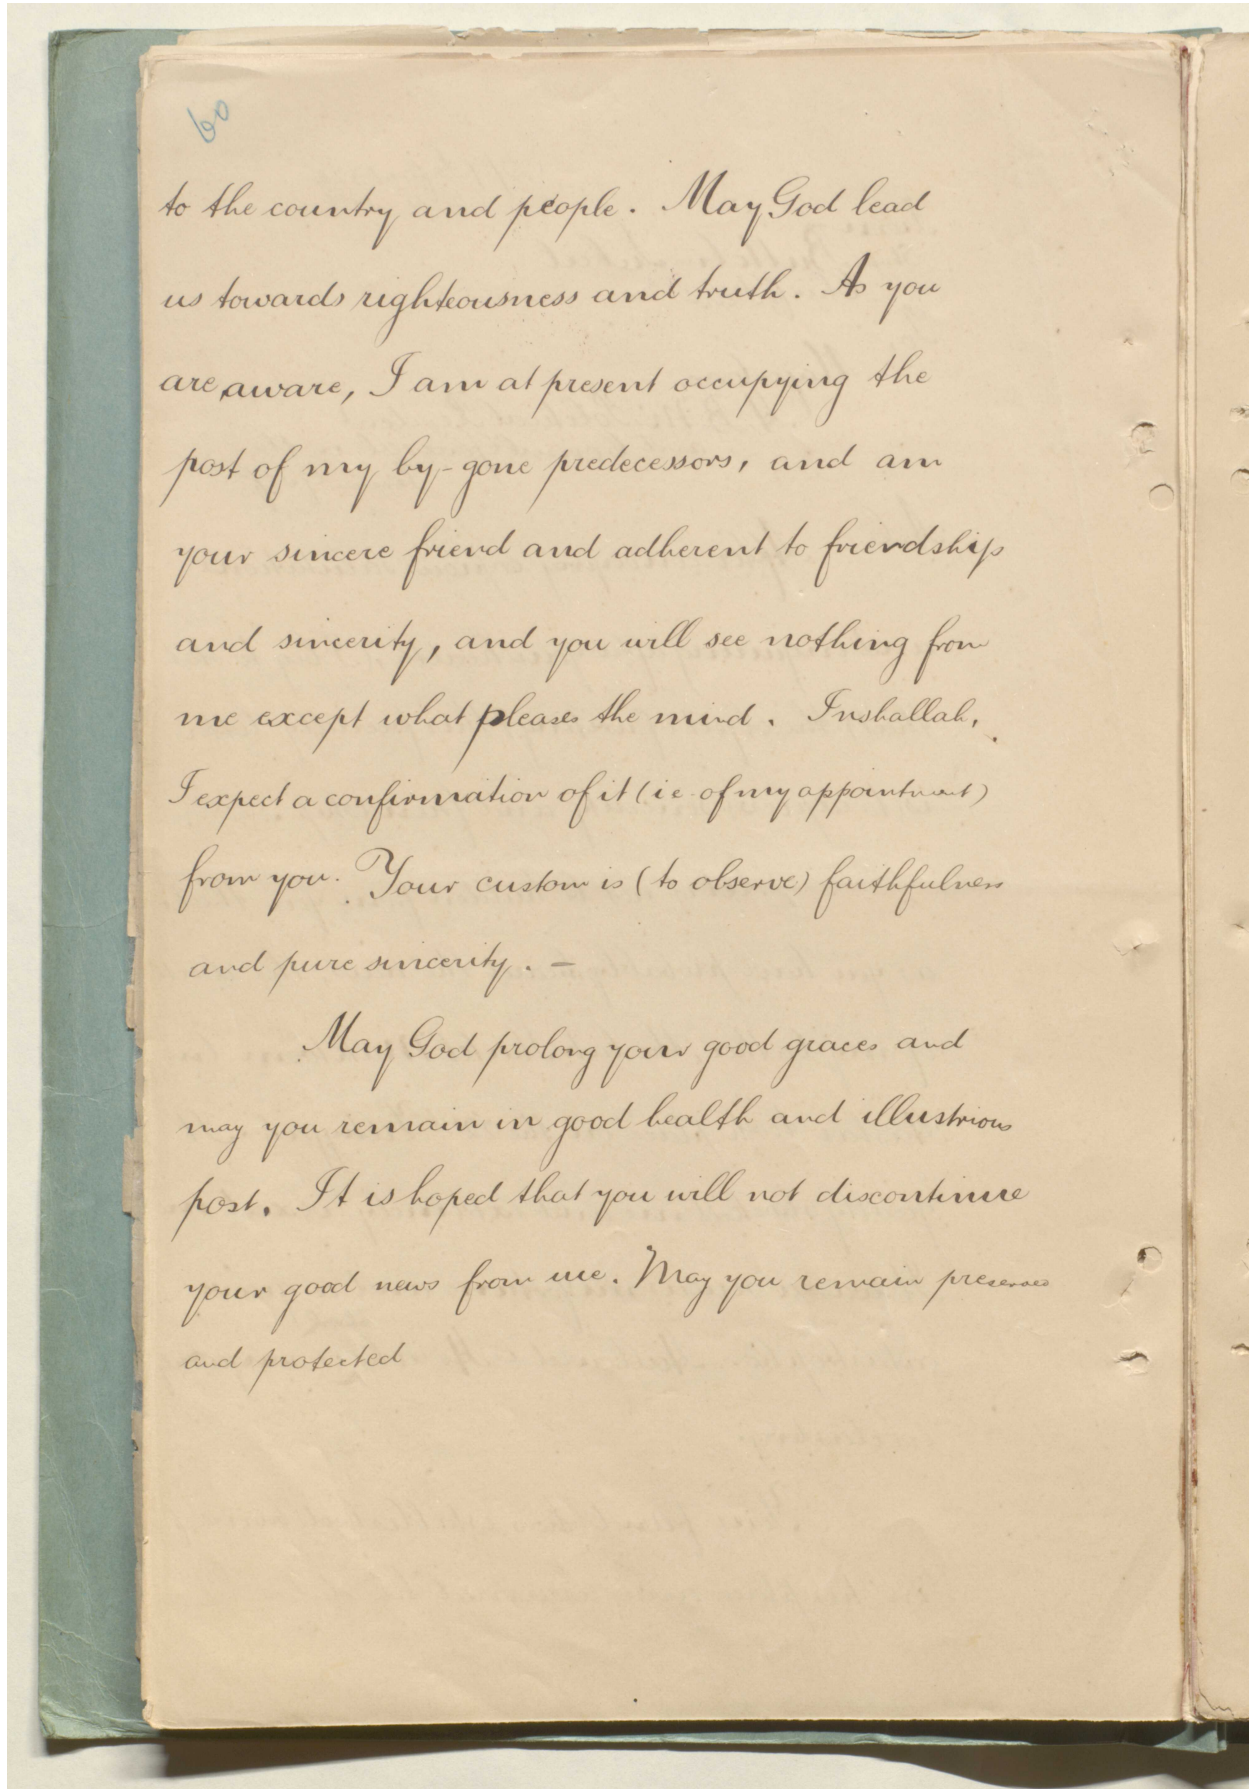 60
to the country and people. May God lead
us towards righteousness and truth. As you
are aware, I am at present occupying the
post of my by-gone predecessors, and am
your sincere friend and adherent to friendship
and sincerity, and you will see nothing from
me except what pleases the mind. Inshallah,
I expect a confirmation of it (ie of my appointment)
from you. Your custom is (to observe) faithfulness
and pure sincerity. —
May God prolong your good graces and
may you remain in good health and illustrious
post. It is hoped that you will not discontinue
your good news from me. May you remain preserved
and protected